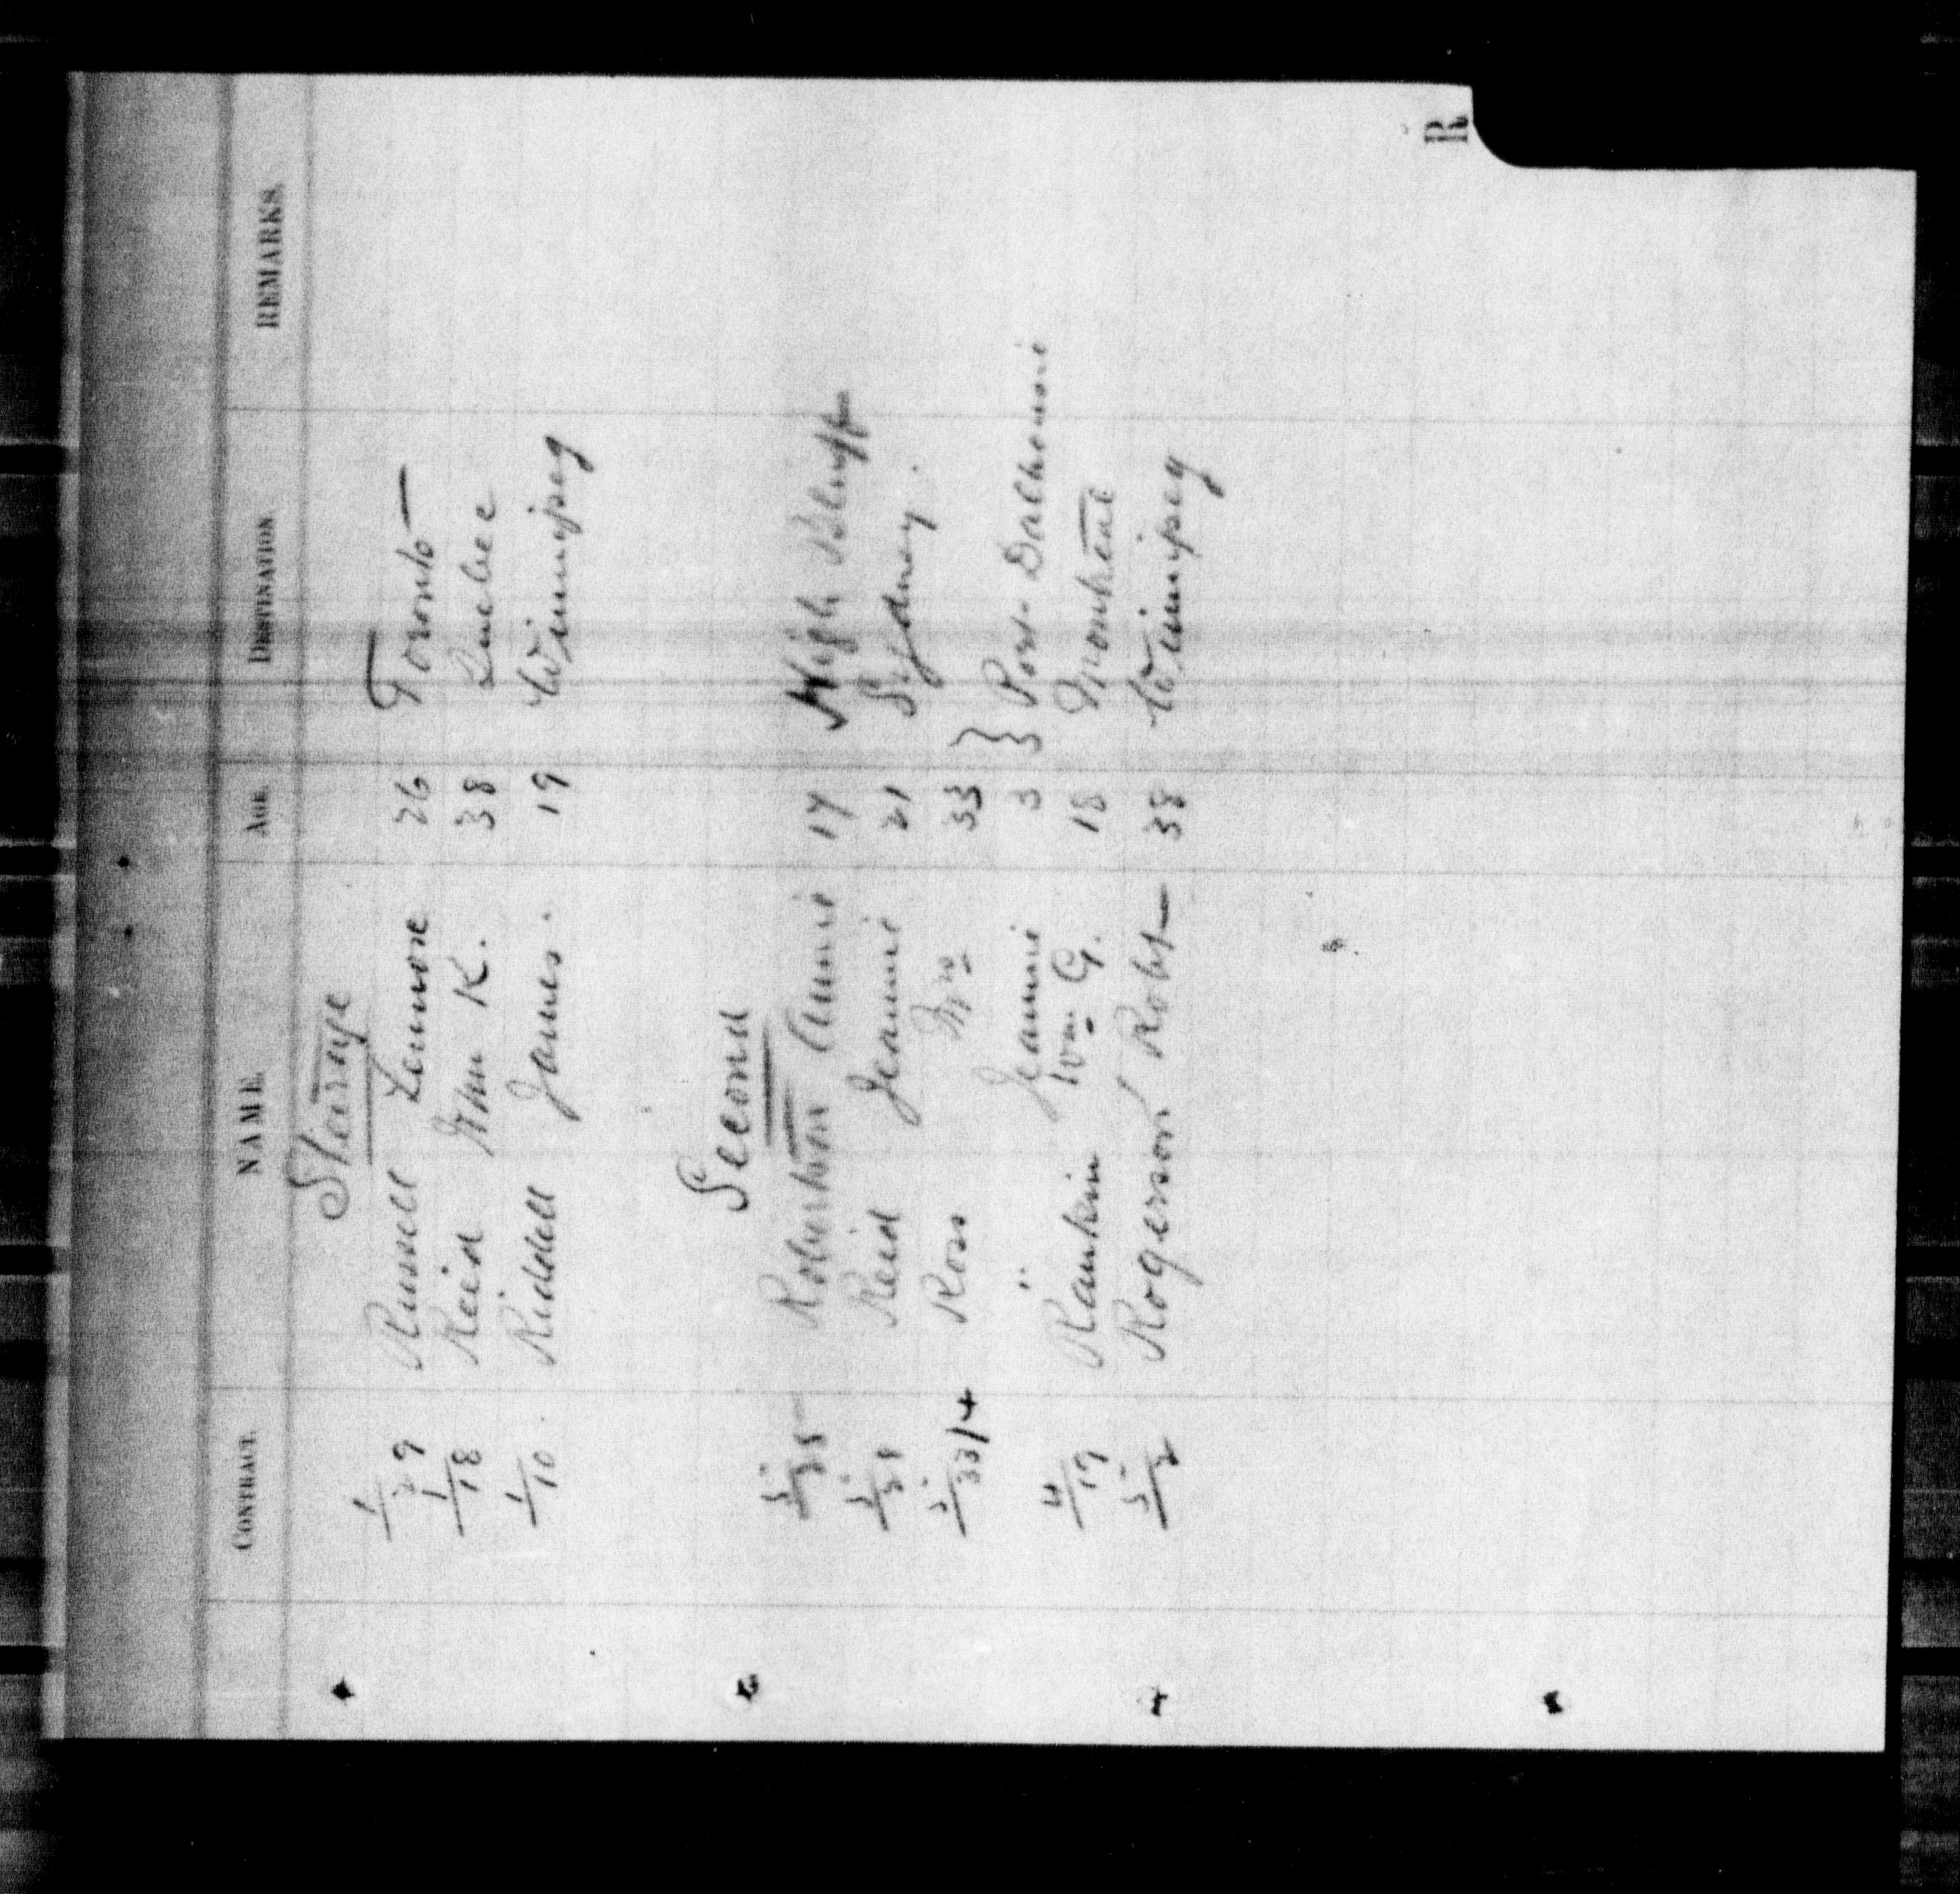 CONTRACT. NAME. AGE. DESTINATION. REMARKS.
Steerage
1/29 Russell Lennore 26 Toronto
1/18 Reid Wm K. 38 Quebec
1/10 Riddell James. 19 Winnipeg
Second
5/35 Robertson Annie 17 High Bluff
Reid Jeannie 21 Sydney.
5/33/4 Ross Mrs 33 }
" Jeannie 3 } 3 Port Dalhousie
4/19 Rankin Wm G. 18 Montreal
5/2 Rogerson Robt 38 Winnipeg
R